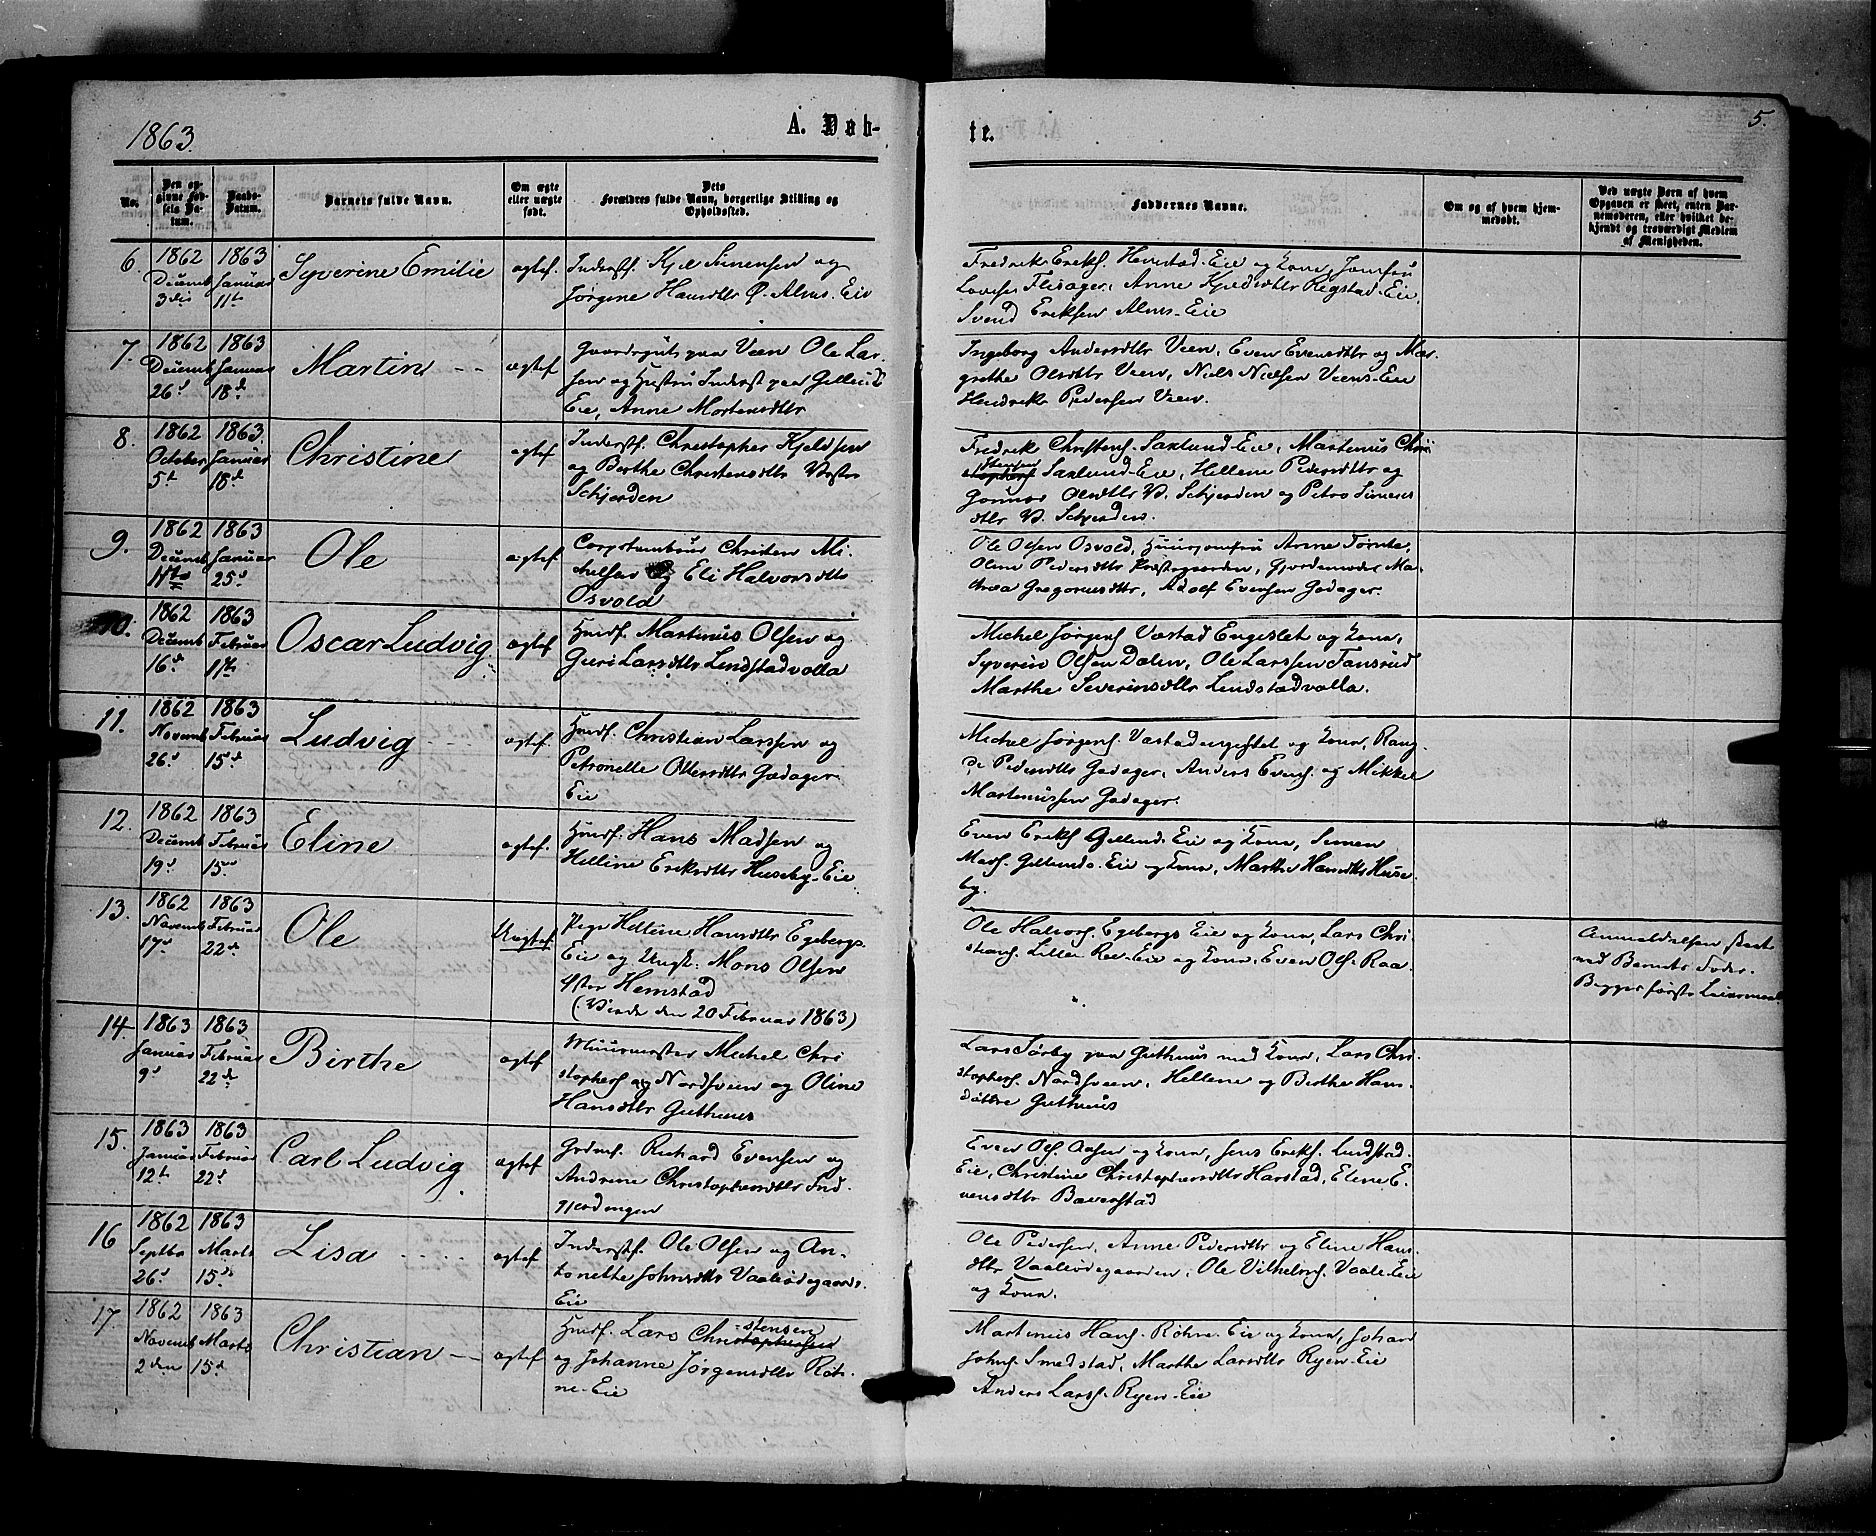 1863.
A. Døb-
te.
5.
No.
Den op-
givne Fød-
sels Da-
tum.
Daabs-
Datum.
Barnets fulde Navn.
Om ægte
eller uægte
født.
Dets
Forældres fulde Navn, borgerlige Stilling og
Opholdssted.
Faddernes Navne.
Om og af hvem hjem-
medøbt.
Ved uægte Børn af hvem
Opgaven er skeet, enten Bar-
nemoderen, eller hvilket be-
kjendt og troværdigt Medlem
af Menigheden.
6.
1862
Decemb
3die
1863
Januar
11te
Syverine Emilie
ægtef.
Inderstf. Kjel Simensen og
Jørgine Hansdtr Ø. Alms-Eie
Fredrik Eriks. Hemstad-Eie og Kone, Jomfru
Lovise Flisager, Anne Kjeldsdtr Regstad-Eie
Svend Eriksen Alms-Eie
7.
1862
Decemb
26d
1863
Januar
18d
Martin
ægtef
Gaardsgut paa Veen Ole Lar-
sen og Hustru Inderst paa Gillunds
Eie, Anne Mortensdtr
Ingeborg Andersdtr Veen, Even Evensdtr og Mar-
grethe Olsdtr Veen, Niels Nielsen Veens-Eie
Hendrik Pedersen Veen.
8.
1862
October
5t
1863.
Januar
18d
Christine
ægtef
Inderstf. Christopher Kjeldsen
og Berthe Christensdtr Vestre
Schjerden
Fredrik Christens. Saxlund-Eie, Martinus Chri
stensen Saxlund-Eie, Hellene Pedersdtr og
Gunnor Olsdtr V. Schjerden og Petro Simens
dtr V. Schjerden.
9.
1862
Decemb
11te
1863
Januar
25d
Ole
ægtef
Corpstambour Christen Mi-
kelsen og Eli Halvorsdtr
Osvold
Ole Olsen Osvold, Huusjomfru Anne Tørnte,
Oline Pedersdtr Præstegaarden, Gjordemoder Ma-
thea Gregoriusdtr, Adolf Evensen Godager.
10.
1862
Decemb
16d
1863
Februar
1ste
Oscar Ludvig
ægtef
Husmf. Martinus Olsen og
Guri Larsdtr Lundstadvolla
Michel Jørgens. Vestad Engeslet og Kone,
Syverin Olsen Dalen, Ole Larssen Fansrud
Marthe Severinsdtr Lundstadvolla.
11.
1862
Novemb
26d
1863
Februar
15d
Ludvig
ægtef
Husmf. Christian Larssen og
Petronelle Ottersdtr Godager-
Eie
Michel Jørgens. Vestadengeslet og Kone, Rang-
di Pedersdtr Godager, Anders Evens. og Mikkel
Martinussen Godager.
12.
1862
Decemb
19d
1863
Februar
15d
Eline
ægtef.
Husmf. Hans Madsen og
Helline Eriksdtr Huseby-Eie
Even Eriks Gillund-Eie og Kone, Simen
Mads. Gillunds-Eie og Kone, Marthe Hansdtr Huse-
by.
13.
1862
Novemb
17d
1863
Februar
22d
Ole
Uægtef
Pige Helline Hansdtr Egebergs-
Eie og Ungk: Mons Olsen
Hemstad
(Viede den 20 Februar 1863)
Ole Halvors. Egebergs Eie og Kone, Lars Chri-
stians. Lille Ree-Eie og Kone, Even Ols. Raa-
Anmeldelsen skeet
ved Barnets Fader.
Begges første Leiermaal.
14.
1863
Januar
9d
1863
Februar
22d
Birthe
ægtef
Muurmester Michel Chri
stophers og Nordsveen og Oline
Hansdtr Guthuus
Lars Sørby paa Guthuus med Kone, Lars Chri-
stophers. Nordsveen, Hellene og Berthe Hans-
døttre Guthuus
15.
1863
Januar
12te
1863
Februar
22d
Carl Ludvig
ægtef
Grdmf. Richard Evensen og
Andrine Christophersdtr Ind-
gjerdingen
Even Ols. Aasen og Kone, Jens Eriks. Lundstad-
Eie, Christine Christophersdtr Harstad, Eline E-
vensdtr Bæverstad
16
1862
Septbr
26d
1863
Marts
15de
Lisa
ægtef
Inderstf. Ole Olsen og An-
tonette Johnsdtr Vaaleødegaards-
Eie
Ole Pedersen, Anne Pedersdtr og Eline Hans-
dtr Vaaleødegaarden, Ole Vilhelms. Vaale-Eie
og Kone.
17.
1862
Novemb
2den
1863
Marts
15d
Christian
ægtef
Husmf. Lars Christensen
og Johanne Jørgensdtr Røh-
ne-Eie
Martinus Hans. Røhne-Eie og Kone, Johan
Johns. Smedstad, Marthe Larsdtr Ryen-Eie
Anders Larss. Ryen-Eie